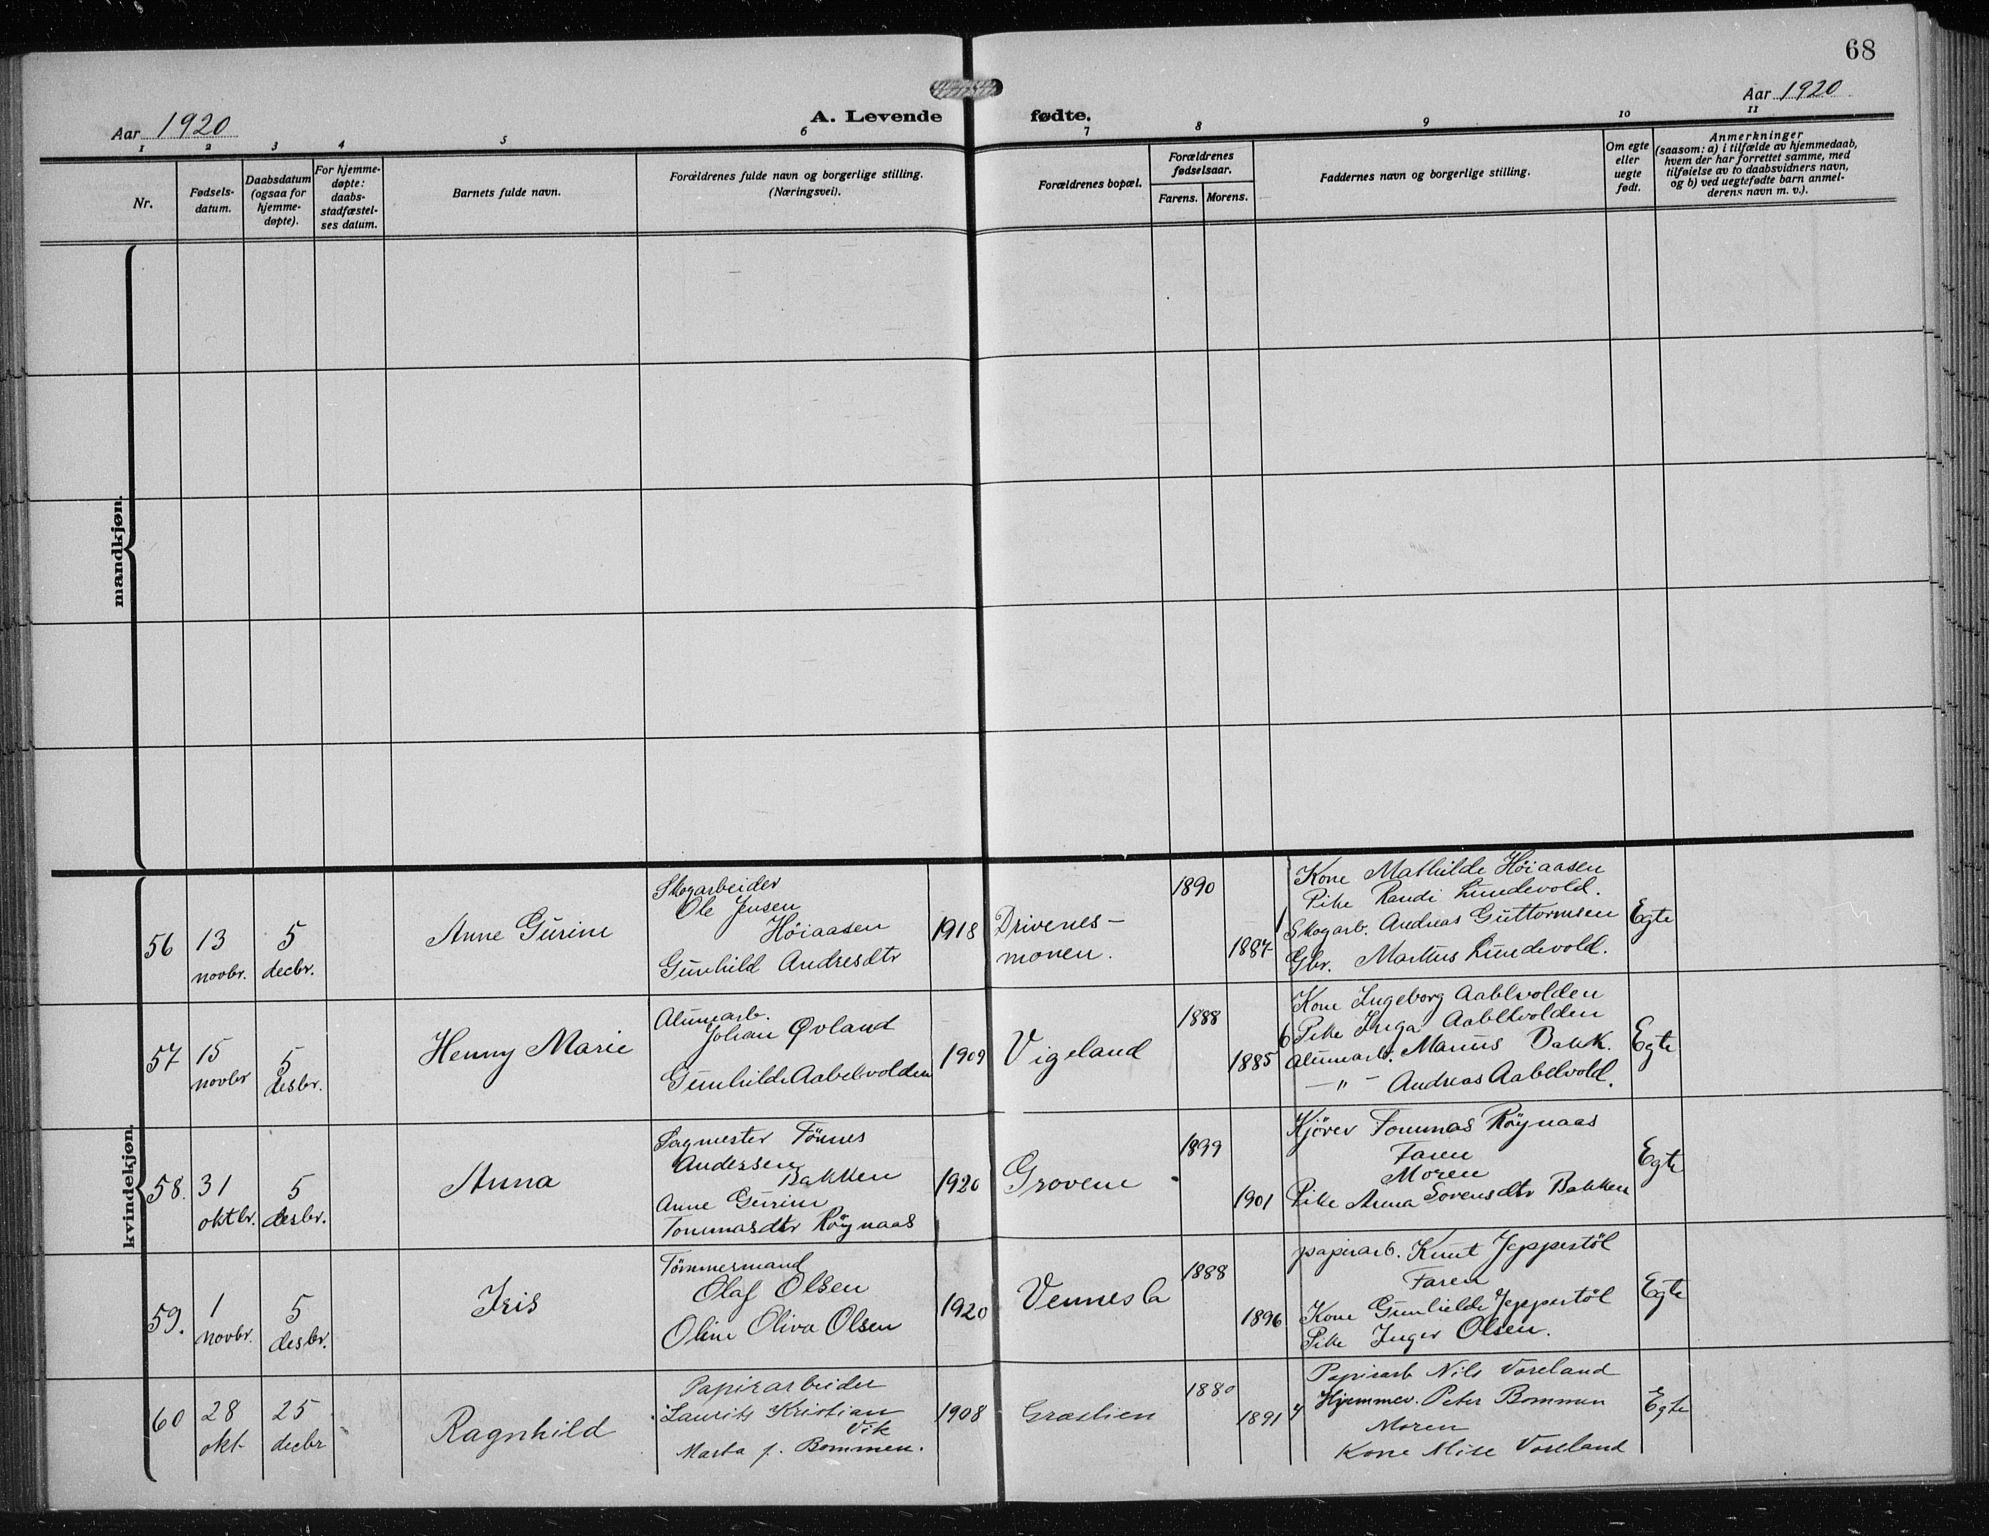 68
Aar 1920
A. Levende
fødte.
Aar 1920
1 2 3 4 5 6 7 8 9 10 11
Nr.
Fødsels-
datum.
Daabsdatum
(ogsaa for
hjemme-
døpte).
For hjemme-
døpte:
daabs-
stadfæstel-
ses datum.
Barnets fulde navn.
Forældrenes fulde navn og borgerlige stilling.
(Næringsvei).
Forældrenes bopæl.
Forældrenes
fødselsaar.
Farens. Morens.
Faddernes navn og borgerlige stilling.
Om egte
eller
uegte
født.
Anmerkninger
(saasom: a) i tilfælde av hjemmedaab,
hvem der har forrettet samme, med
tilføielse av to daabsvidners navn,
og b) ved uegtefødte barn anmel-
derens navn m. v.).
mandkjøn.
kvindekjøn.
56
13
novbr.
5
decbr.
Anne Gurine
Skogarbeider
Ole Jensen
Høiaasen
Gunhild Andresdtr
1918
Drivenes-
monen.
1890
1887
1
Kone Mathilde Høiaasen
Pike Randi Lundevold.
Skogarb. Andreas Guttormsen
Gbr. Martius Lundevold.
Egte
57
15
novbr
5
desbr.
Henny Marie
Alumarb.
Johan Øvland
Gunhilde Aabelvolden
1909
Vigeland
1888
1885
6
Kone Ingeborg Aablvolden
Pike Inga Aablvolden
Alumarb. Marius Bakk.
—"— Andreas Aabelvold.
Egte
58.
31
oktbr.
5
desbr.
Anna
Sagmester Tønnes
Andersen
Bakken
Anne Gurine
Tommasdtr Røynaas
1920
Grovene
1899
1901
Kjører Tommas Røynaas
Faren
Moren
Pike Anna Sorensdtr Bakken
Egte
59.
1
novbr.
5
desbr.
Iris
Tømmermand
Olaf Olsen
Oline Oliva Olsen
1920
Vennesla
1888
1896
papirarb. Knut Jeppestøl
Faren
Kone Gunhilde Jeppestøl
Pike Inger Olsen.
Egte
60
28
okt.
25
decbr
Ragnhild
Papirarbeider
Laurits Kristian
Vik
Marta f. Bommen.
1908
Graslien
1880
1891
4
Papirarb Nils Voreland
Hjemmev. Peter Bommen
Moren
Kone Alise Voreland
Egte